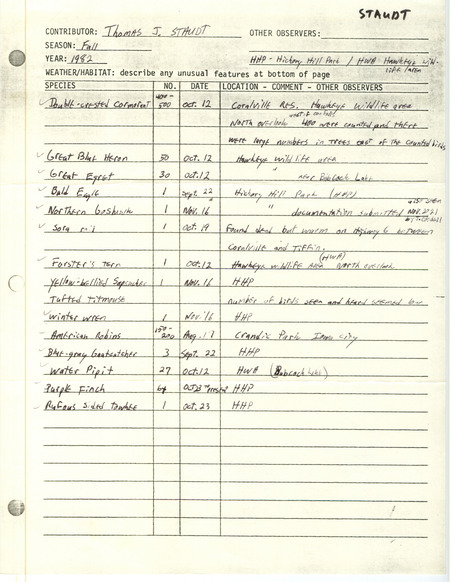 STAUDT
CONTRIBUTOR: Thomas J. STAUDT OTHER OBSERVERS:
SEASON: Fall
YEAR: 1982 HHP - Hickory Hill Park / HWA Hawkeye Wild-
life Area
WEATHER/HABITAT: describe any unusual features at bottom of page
SPECIES NO. DATE LOCATION - COMMENT - OTHER OBSERVERS
Double-crested Cormorant 400-500 Oct. 12 Coralville Res. Hawkeye Wildlife area
North overlook 400 were counted and there
were large numbers in trees east of the counted birds
Great Blue Heron 50 Oct. 12 Hawkeye wildlife area
Great Egret 30 Oct. 12 " near Babcock Lake
Bald Eagle 1 Sept. 22 Hickory Hill Park (HHP)
Northern Goshawk 1 Nov. 16 " documentation submitted
Sora rail 1 Oct. 19 Found dead but warm on Highway 6 between
Coralville and Tiffin.
Forster's Tern 1 Oct. 12 Hawkeye wildlife area (HWA) North overlook
Yellow-bellied Sapsucker 1 Nov. 16 HHP
Tufted Titmouse number of birds seen and heard seemed low
Winter Wren 1 Nov 16 HHP
American Robins 150-200 Aug. Park Iowa City
Blue-gray Gnatcatcher 3 Sept. 22 HHP
Water Pipit 27 Oct. 12 HWA (Babcock Lake)
Purple Finch Oct 23 HHP
Rufous sided Towhee 1 Oct. 23 HHP